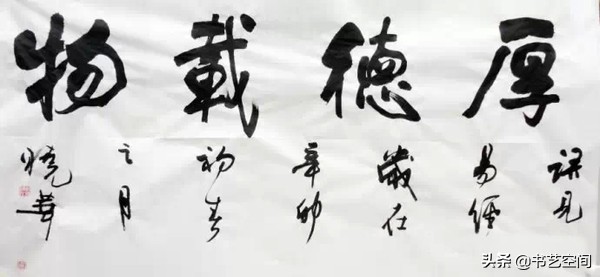 厚德載物
語見
易經
歲在
辛卯
初春
之月
曉
头条 @书艺空间